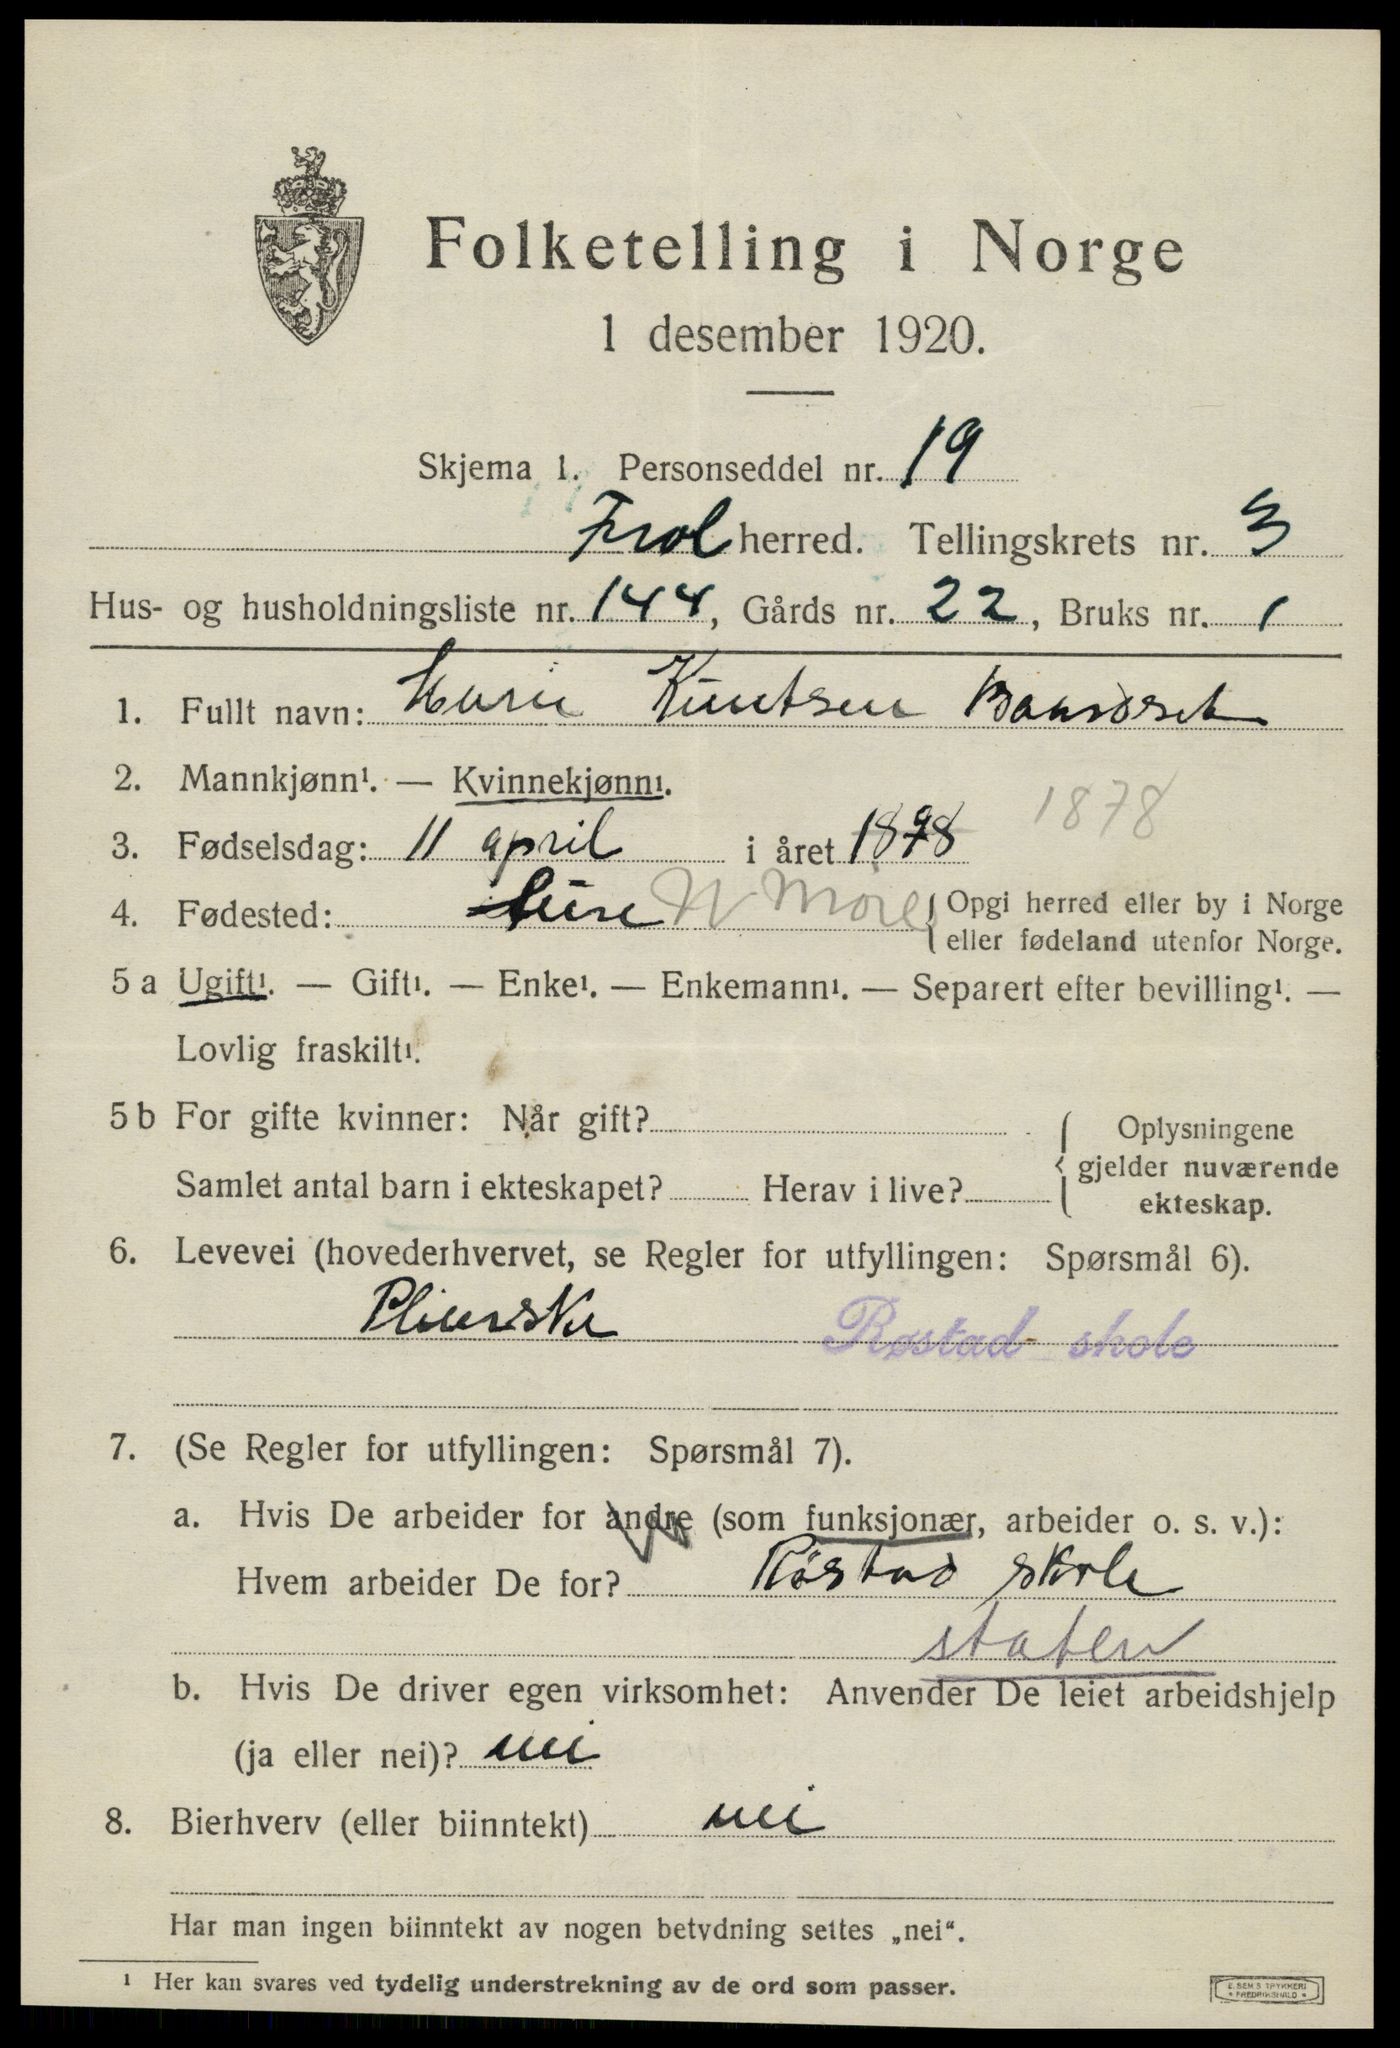 Folketelling i Norge
1 desember 1920.
Skjema 1. Personseddel nr. 19
Frol herred. Tellingskrets nr. 3
Hus- og husholdningsliste nr. 144, Gårds nr. 22, Bruks nr. 1
1. Fullt navn: Marie Knutsen
2. Mannkjønn¹. — Kvinnekjønn¹.
3. Fødselsdag: 11 april i året 1878 1878
4. Fødested: Aure N Møre Opgi herred eller by i Norge
eller fødeland utenfor Norge.
5 a Ugift¹. — Gift¹. — Enke¹. — Enkemann¹. — Separert efter bevilling¹. —
Lovlig fraskilt¹.
5 b For gifte kvinner: Når gift? Oplysningene
gjelder nuværende
Samlet antal barn i ekteskapet? Herav i live? ekteskap.
6. Levevei (hovederhvervet, se Regler for utfyllingen: Spørsmål 6).
Pleierske Røstad skole
7. (Se Regler for utfyllingen: Spørsmål 7).
a. Hvis De arbeider for andre (som funksjonær, arbeider o. s. v.):
Hvem arbeider De for? Røstad skole
staten
b. Hvis De driver egen virksomhet: Anvender De leiet arbeidshjelp
(ja eller nei)? nei
8. Bierhverv (eller biinntekt) nei
Har man ingen biinntekt av nogen betydning settes „nei“.
¹ Her kan svares ved tydelig understrekning av de ord som passer.
E. SEM'S TRYKKERI
FREDRIKSHALD